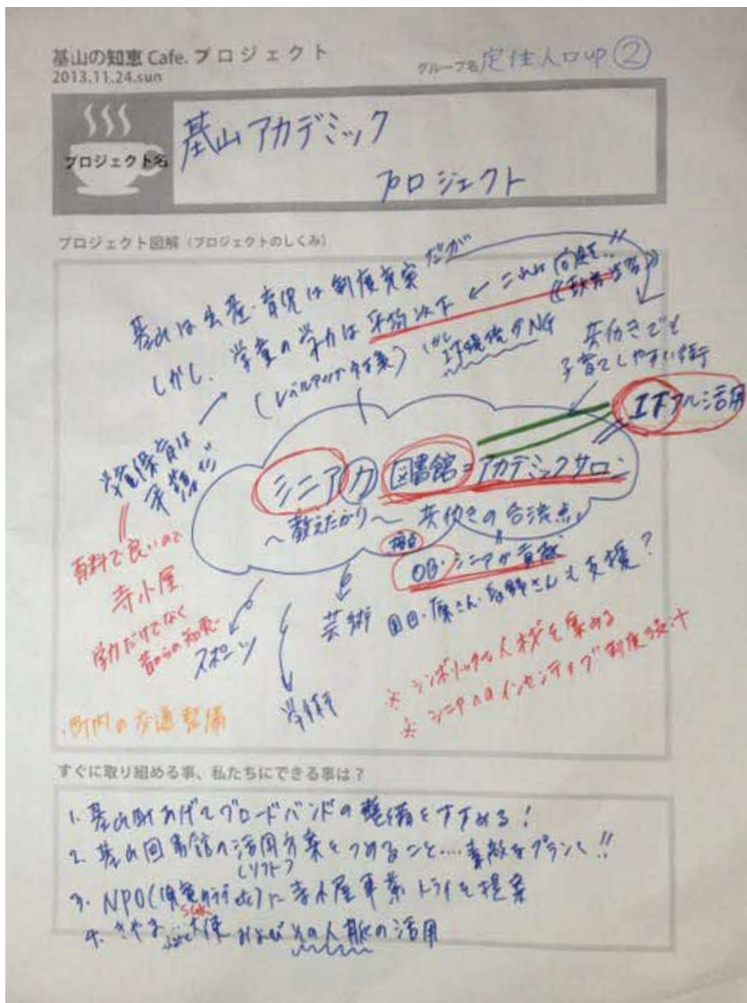 基山の知恵 Cafe. プロジェクト
2013.11.24.sun
グループ名 定住人口up ②
プロジェクト名
基山アカデミック
プロジェクト
プロジェクト図解（プロジェクトのしくみ）
基山は出産・育児は制度充実 だが
しかし、学童の学力は平均以下 ← これは 向上
(レベルアップが必要) IT環境がNG
共働きでも
子育てしやすい街
ITフル活用
学童保育は
シニア力 図書館＝アカデミックサロン
～教えたがり～ 共働きの合流点
OB・シニアが貢献
有料で良いので
寺小屋
学力だけでなく
昔からの知恵
スポーツ
芸術
原さん
さんも支援？
学術
※ シンボリックな人材を集める
※ シニアへのインセンティブ制度設計
・町内の交通整備
すぐに取り組める事、私たちにできる事は？
1. 基山町あげてブロードバンドの整備をすすめる！
2. 基山図書館の活用方案をつめること…素敵なプランく!!
(ソフト)
3. NPO( etc)に寺小屋事業トライを提案
4. きやま 大使 およびその人脈の活用